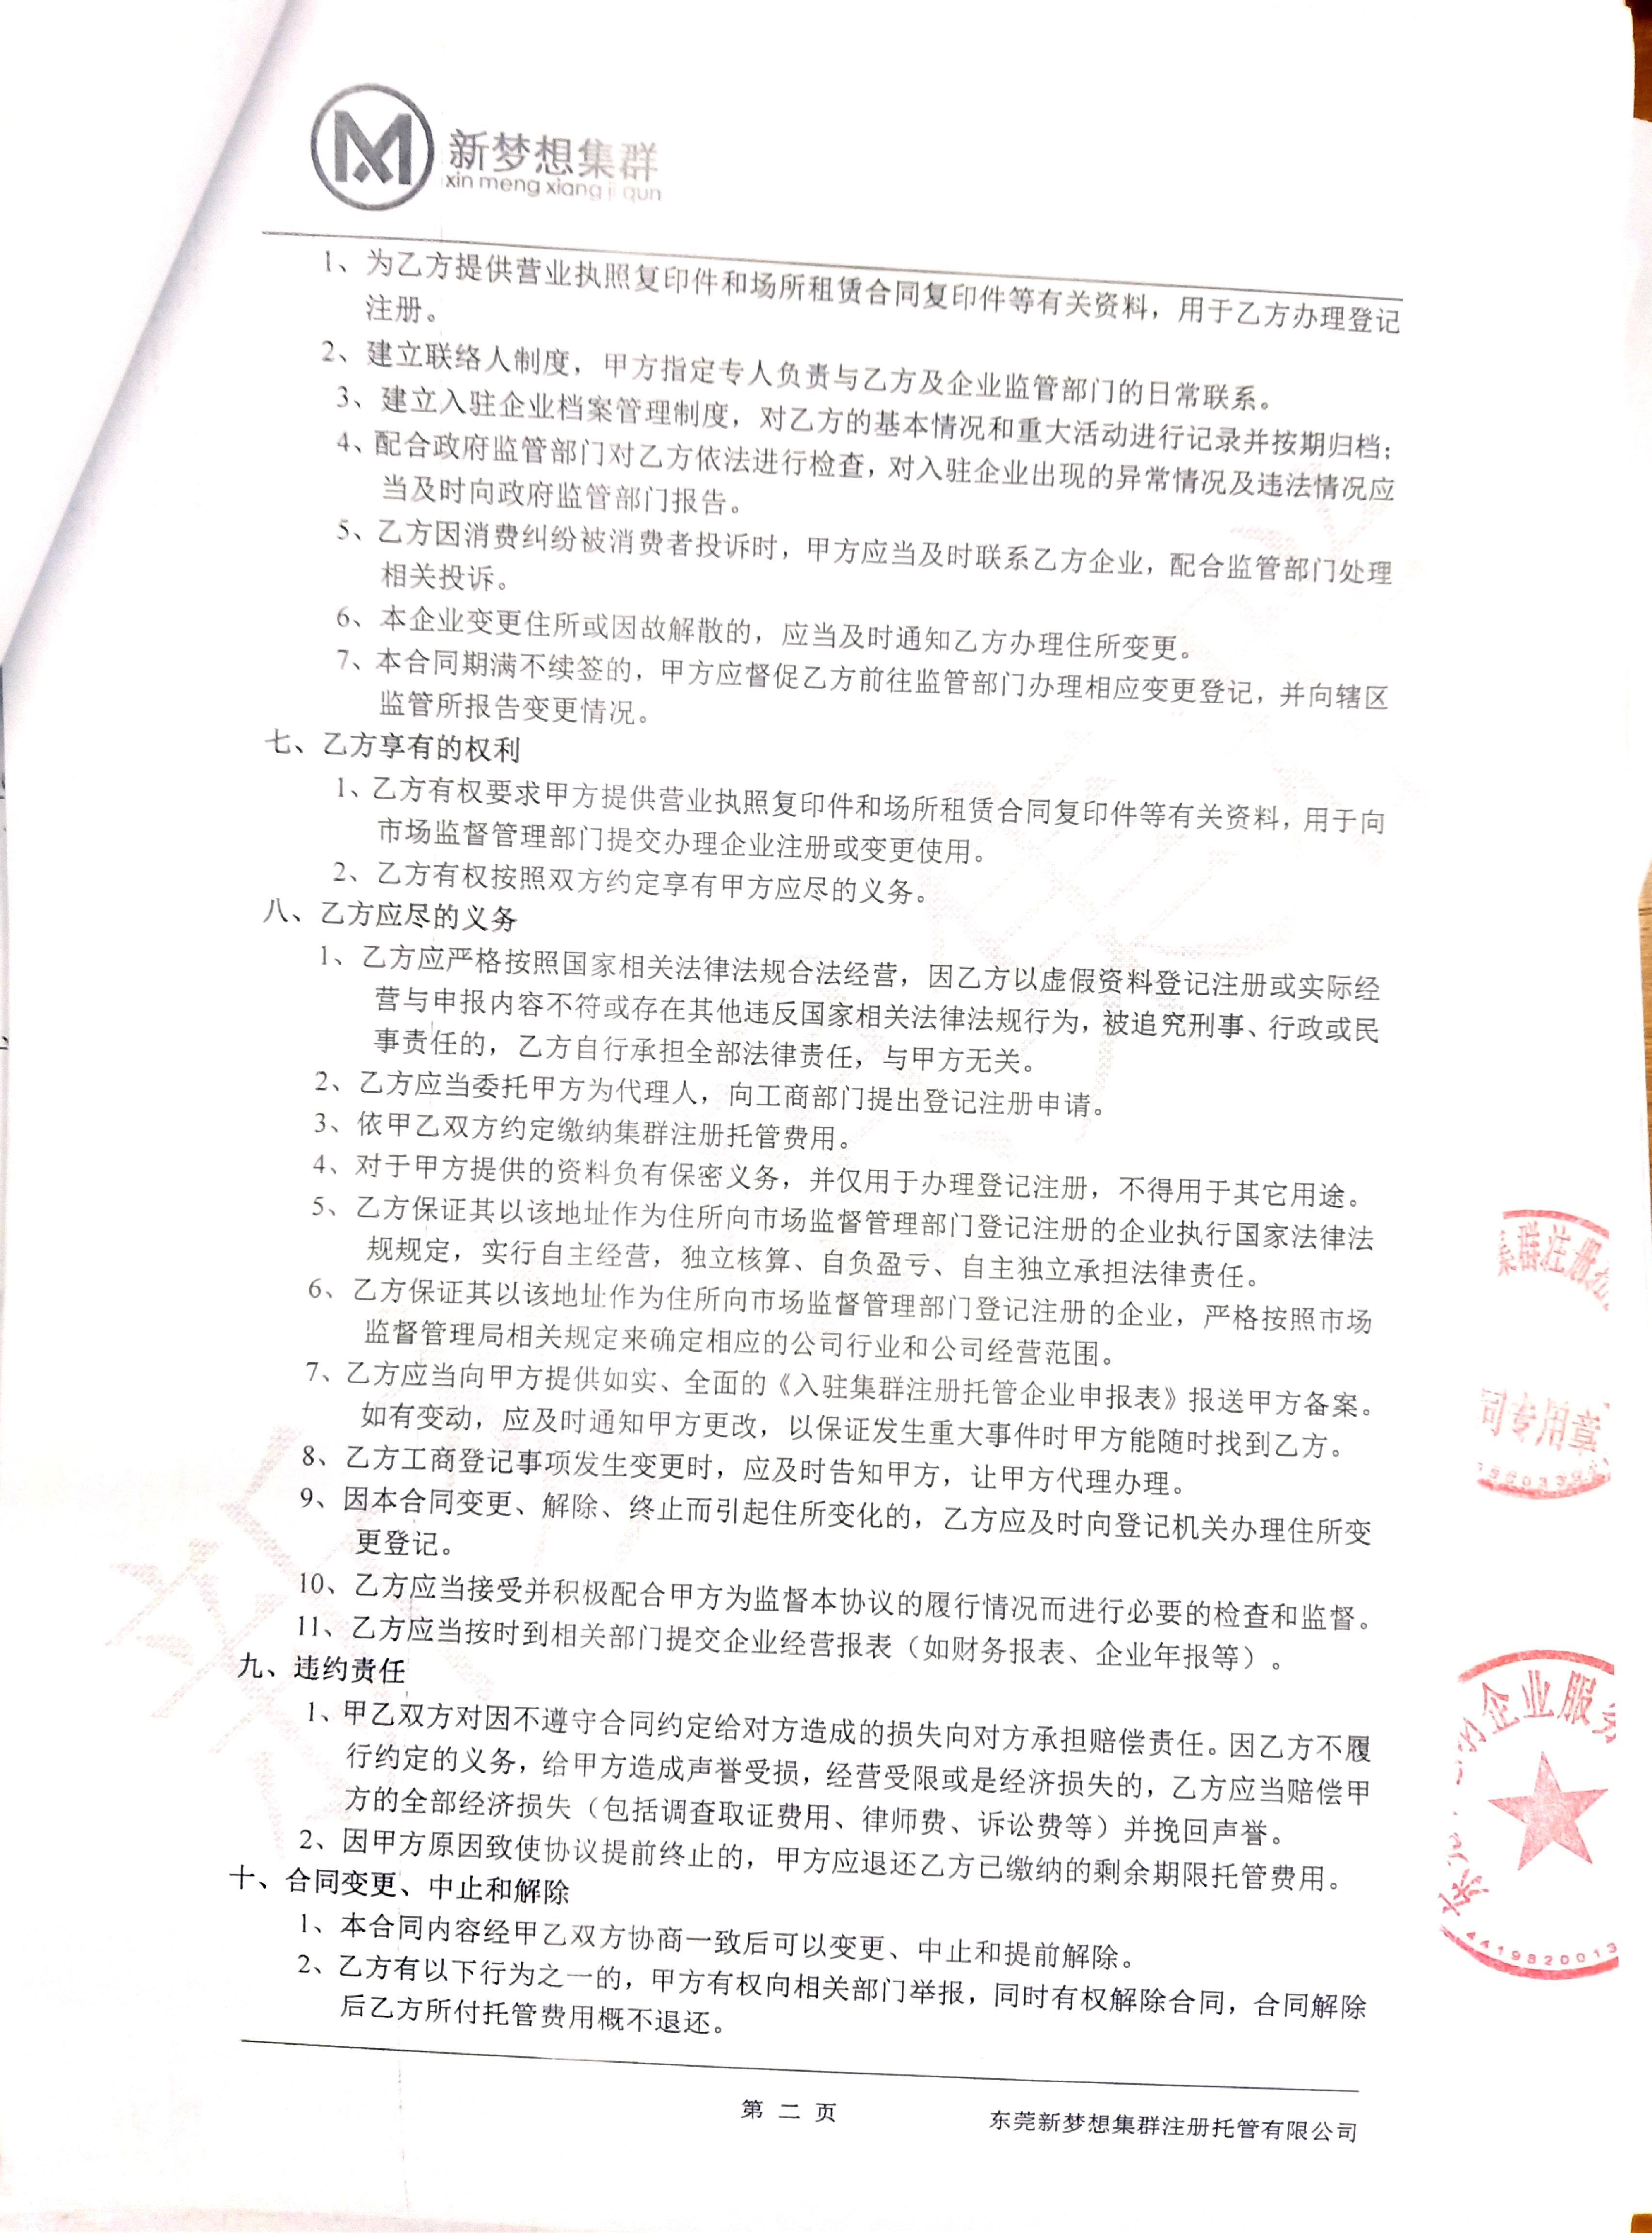 新梦想集群
xin meng xiang ji qun
1、为乙方提供营业执照复印件和场所租赁合同复印件等有关资料，用于乙方办理登记
注册。
2、建立联络人制度，甲方指定专人负责与乙方及企业监管部门的日常联系。
3、建立入驻企业档案管理制度，对乙方的基本情况和重大活动进行记录并按期归档；
4、配合政府监管部门对乙方依法进行检查，对入驻企业出现的异常情况及违法情况应
当及时向政府监管部门报告。
5、乙方因消费纠纷被消费者投诉时，甲方应当及时联系乙方企业，配合监管部门处理
相关投诉。
6、本企业变更住所或因故解散的，应当及时通知乙方办理住所变更。
7、本合同期满不续签的，甲方应督促乙方前往监管部门办理相应变更登记，并向辖区
监管所报告变更情况。
七、乙方享有的权利
1、乙方有权要求甲方提供营业执照复印件和场所租赁合同复印件等有关资料，用于向
市场监督管理部门提交办理企业注册或变更使用。
2、乙方有权按照双方约定享有甲方应尽的义务。
八、乙方应尽的义务
1、乙方应严格按照国家相关法律法规合法经营，因乙方以虚假资料登记注册或实际经
营与申报内容不符或存在其他违反国家相关法律法规行为，被追究刑事、行政或民
事责任的，乙方自行承担全部法律责任，与甲方无关。
2、乙方应当委托甲方为代理人，向工商部门提出登记注册申请。
3、依甲乙双方约定缴纳集群注册托管费用。
4、对于甲方提供的资料负有保密义务，并仅用于办理登记注册，不得用于其它用途。
5、乙方保证其以该地址作为住所向市场监督管理部门登记注册的企业执行国家法律法
规规定，实行自主经营，独立核算、自负盈亏、自主独立承担法律责任。
6、乙方保证其以该地址作为住所向市场监督管理部门登记注册的企业，严格按照市场
监督管理局相关规定来确定相应的公司行业和公司经营范围。
7、乙方应当向甲方提供如实、全面的《入驻集群注册托管企业申报表》报送甲方备案。
如有变动，应及时通知甲方更改，以保证发生重大事件时甲方能随时找到乙方。
8、乙方工商登记事项发生变更时，应及时告知甲方，让甲方代理办理。
9、因本合同变更、解除、终止而引起住所变化的，乙方应及时向登记机关办理住所变
更登记。
10、乙方应当接受并积极配合甲方为监督本协议的履行情况而进行必要的检查和监督。
11、乙方应当按时到相关部门提交企业经营报表（如财务报表、企业年报等）。
九、违约责任
1、甲乙双方对因不遵守合同约定给对方造成的损失向对方承担赔偿责任。因乙方不履
行约定的义务，给甲方造成声誉受损，经营受限或是经济损失的，乙方应当赔偿甲
方的全部经济损失（包括调查取证费用、律师费、诉讼费等）并挽回声誉。
2、因甲方原因致使协议提前终止的，甲方应退还乙方已缴纳的剩余期限托管费用。
十、合同变更、中止和解除
1、本合同内容经甲乙双方协商一致后可以变更、中止和提前解除。
2、乙方有以下行为之一的，甲方有权向相关部门举报，同时有权解除合同，合同解除
后乙方所付托管费用概不退还。
第 二 页
东莞新梦想集群注册托管有限公司
集群注册
同专用章
企业服务
4419820013